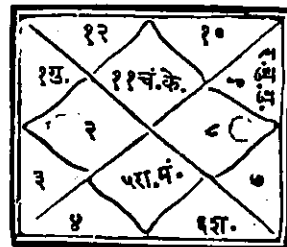 १२ १०
१गु. ११चं.के. ९
र.बु.शु.
२ ८
३ ५रा.मं. ७
४ ६श.